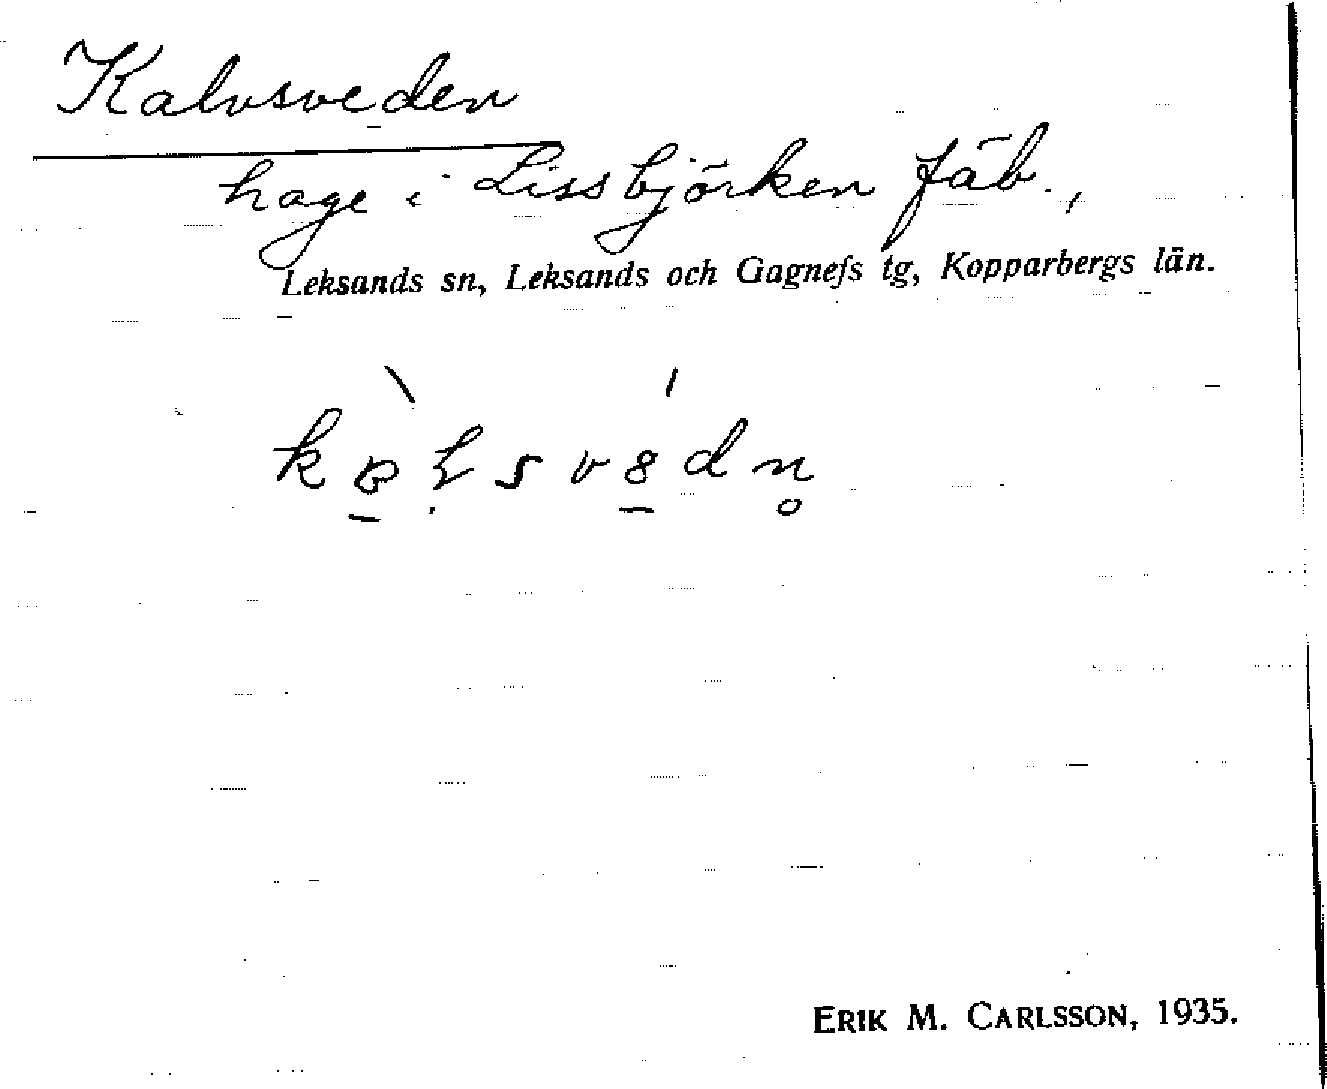 Kalvsveden
hage i Lissbjörken fäb.,
Leksands sn, Leksands och Gagnefs tg, Kopparbergs län.
ERIK M. CARLSSON, 1935.